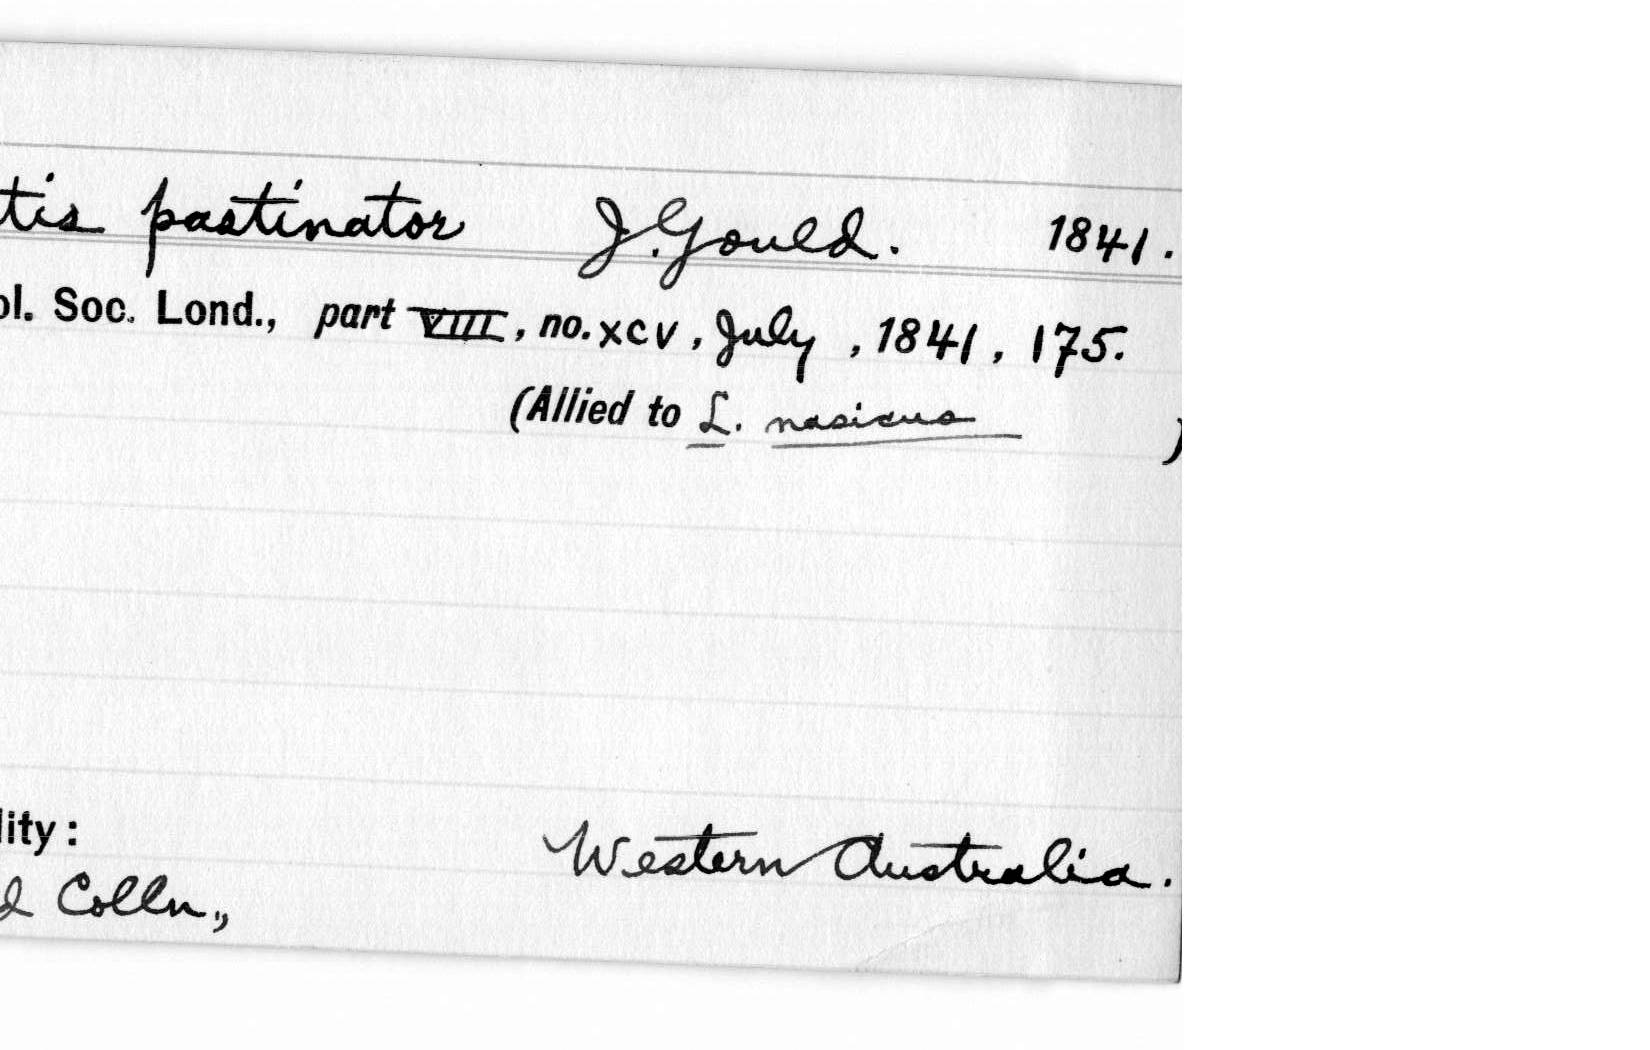 tis pastinator J. Gould. 1841.
ol. Soc. Lond., part VIII, no. XCV, July, 1841, 175.
(Allied to L. nasicus )
lity: Western Australia.
d Colln.,